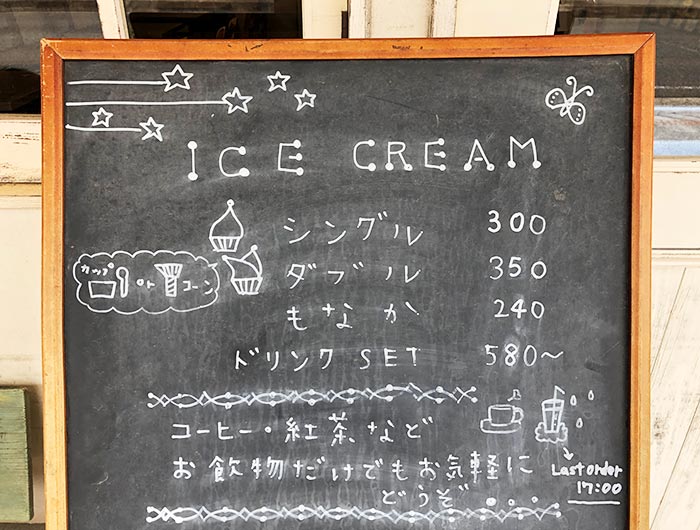 ICE CREAM
シングル 300
ダブル 350
カップ or コーン
もなか 240
ドリンク SET 580～
コーヒー・紅茶など
お飲物だけでもお気軽に
どうぞ...
Last order
17:00